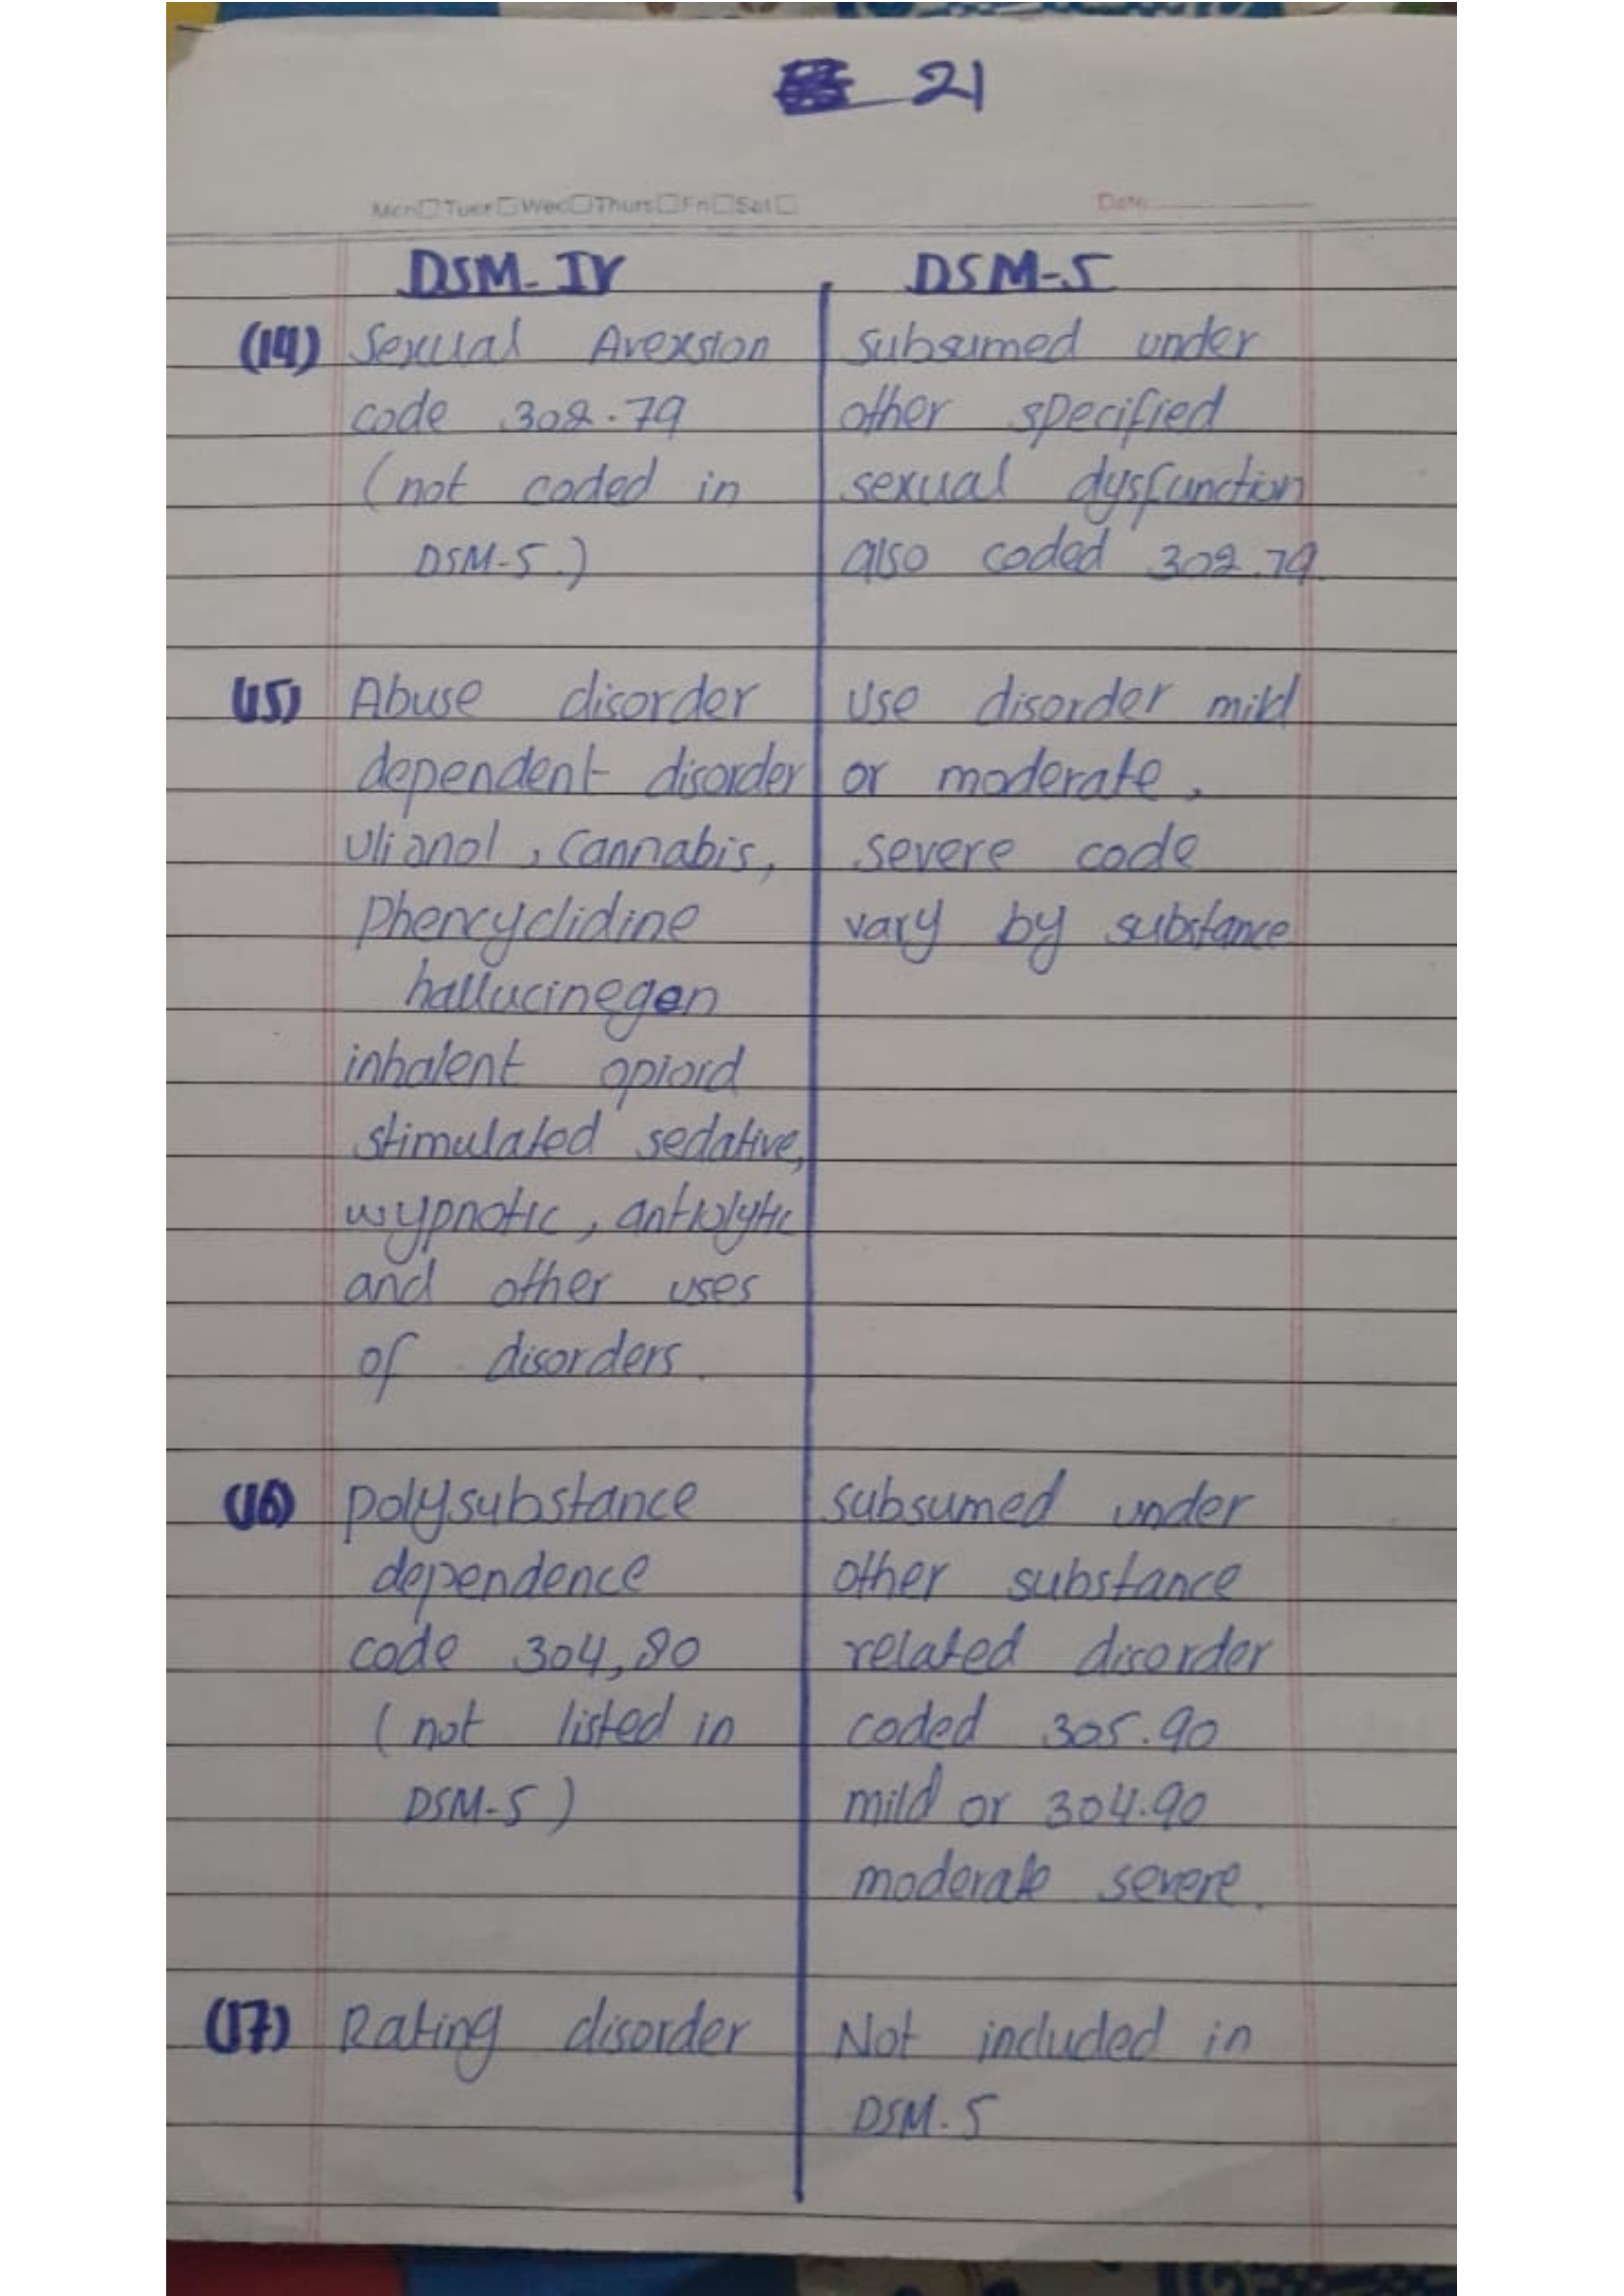 21
Mon Tues Wed Thurs Fri Sat Date
DSM-IV DSM-5
(14) Sexual Aversion
code 302.79
(not coded in
DSM-5.)
subsumed under
other specified
sexual dysfunction
also coded 302.79
(15) Abuse disorder
dependent disorder
, cannabis,
Phencyclidine
hallucinegen
inhalent opioid
stimulated sedative,
wypnotic,
and other uses
of disorders.
use disorder mild
or moderate,
severe code
vary by substance
(16) polysubstance
dependence
code 304,80
(not listed in
DSM-5)
subsumed under
other substance
related disorder
coded 305.90
mild or 304.90
moderate severe.
(17) Rating disorder
Not included in
DSM.5